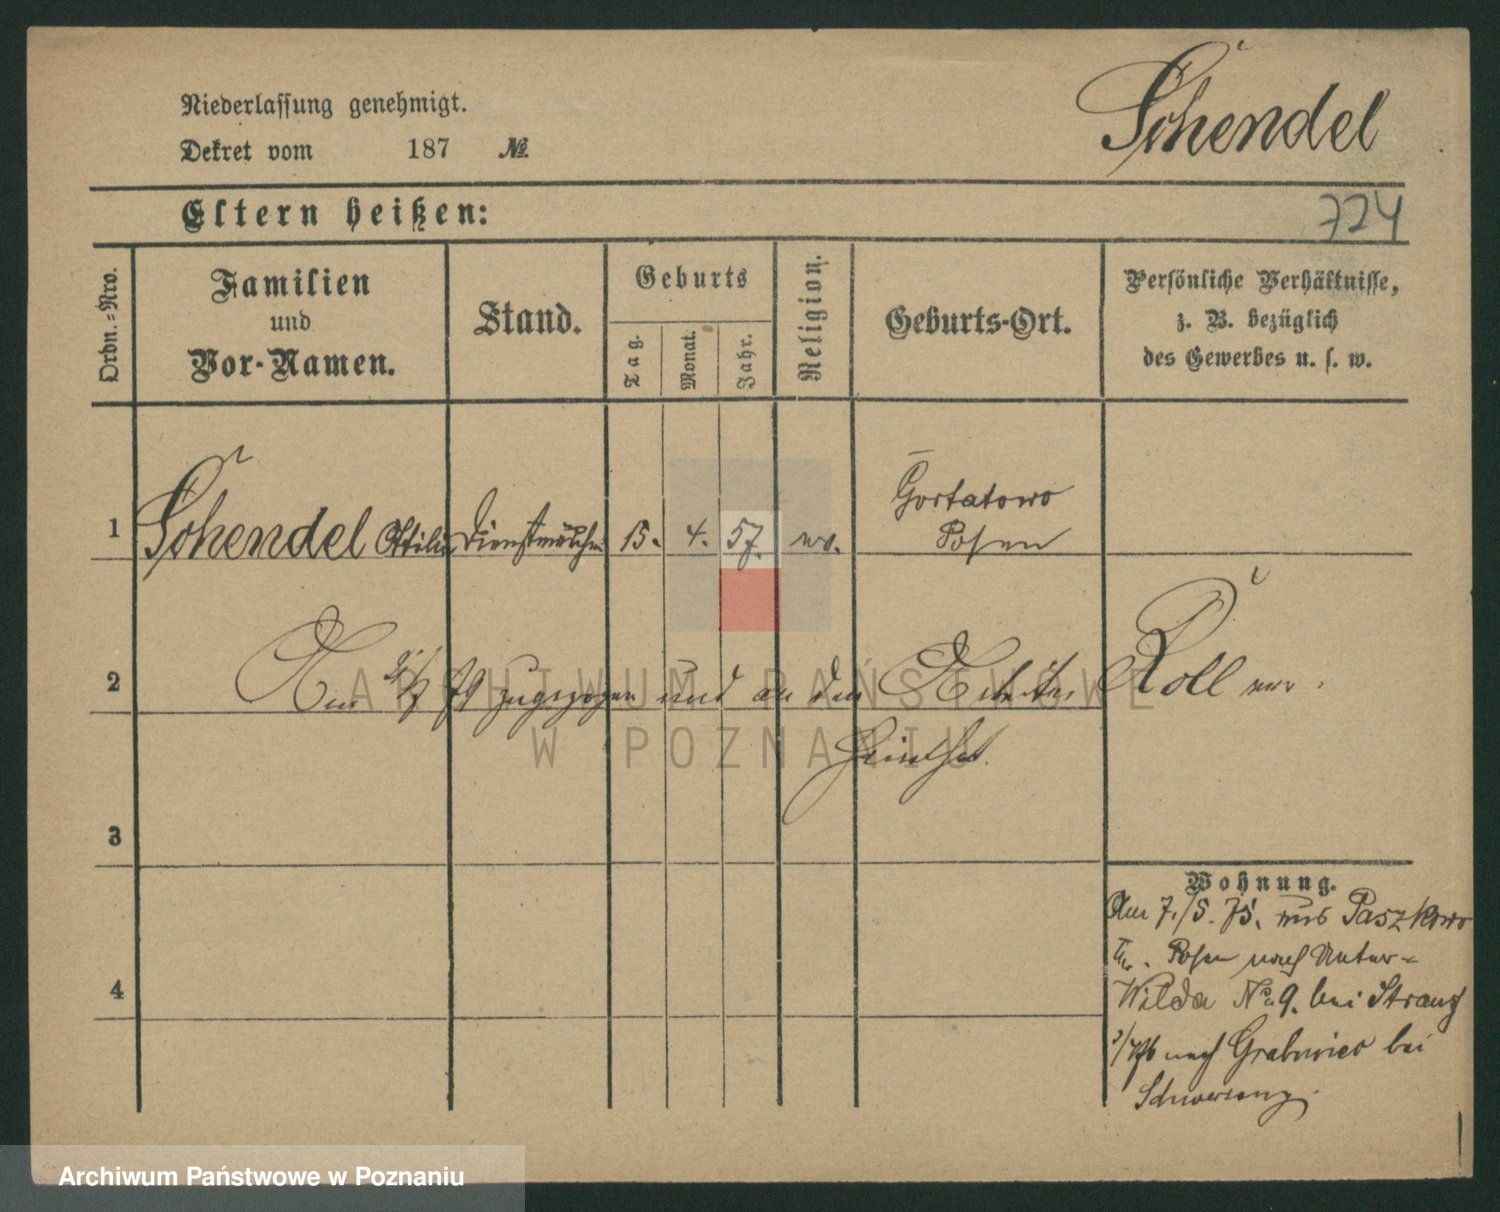 Niederlassung genehmigt.
Dekret vom 187 №
Schendel
Eltern heißen:
724
Ordn.=Nro.
Familien
und
Vor-Namen.
Stand.
Geburts
Tag.
Monat.
Jahr.
Religion.
Geburts-Ort.
Persönliche Verhältnisse,
z. B. bezüglich
des Gewerbes u. s. w.
1 Schendel Ottilie Dienstmädchen 15. 4. 57. ev. Gortatowo
Posen
2 79 zugezogen und an den Arbeiter Roll
3
Wohnung.
Am 7./5. 75. aus Paszkowo
Kr. Posen nach Unter-
4
Wilda No 9. bei Stranz
nach Grabowiec bei
Schwersenz.
ARCHIWUM PAŃSTWOWE
W POZNANIU
Archiwum Państwowe w Poznaniu